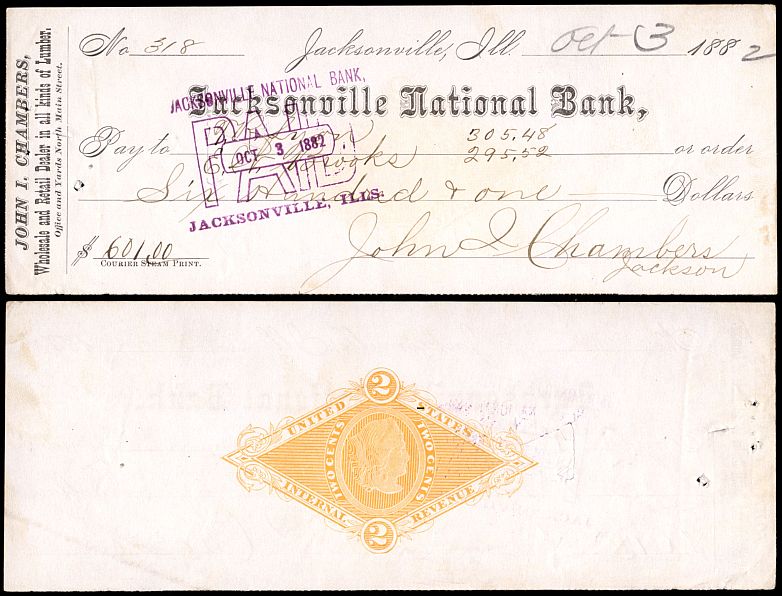 JOHN I. CHAMBERS,
Wholesale and Retail Dealer in all kinds of Lumber.
Office and Yards North Main Street.
No 318 Jacksonville, Ill. Oct 3 1882
Jacksonville National Bank,
Pay to 305,48
295,52 or order
Six Hundred & one Dollars
$ 601,00
John I Chambers
Jackson
COURIER STEAM PRINT.
JACKSONVILLE NATIONAL BANK,
PAID
OCT 3 1882
JACKSONVILLE, ILLS.
2
UNITED STATES
TWO CENTS TWO CENTS
INTERNAL REVENUE
2